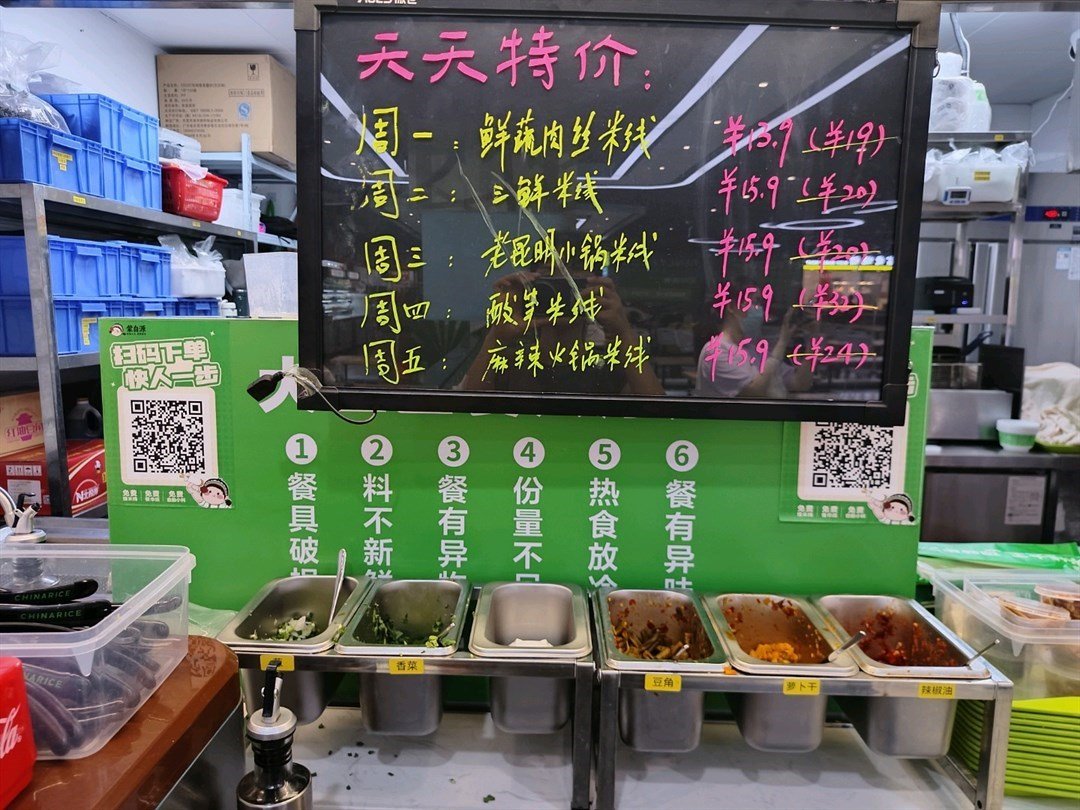 天天特价：
周一：鲜蔬肉丝米线 ¥13.9 (¥19)
周二：三鲜米线 ¥15.9 (¥20)
周三：老昆明小锅米线 ¥15.9 (¥20)
周四：酸笋米线 ¥15.9 (¥32)
周五：麻辣火锅米线 ¥15.9 (¥24)
蒙自源
扫码下单
快人一步
免费 免费 免费
1 餐具破损
2 料不新鲜
3 餐有异物
4 份量不足
5 热食放冷
6 餐有异味
免费 免费 免费
CHINARICE
CHINARICE
香菜
豆角
萝卜干
辣椒油